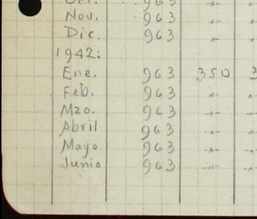 Oct. 963 "
Nov. 963 "
Dic. 963 "
1942:
Ene. 963 350
Feb. 963 "
Mzo. 963 "
Abril 963 "
Mayo 963 "
Junio 963 "